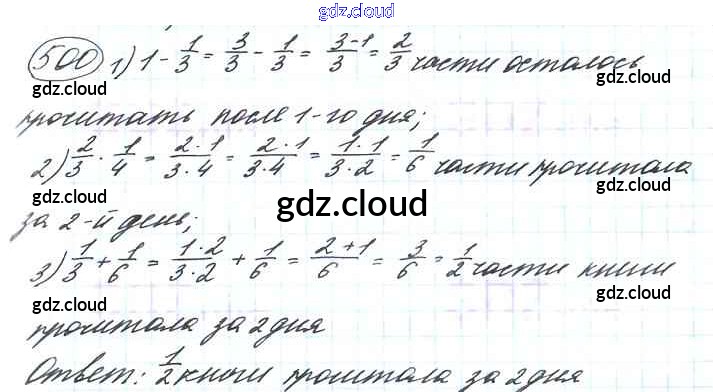 gdz.cloud
500 1) 1 - 1/3 = 3/3 - 1/3 = (3-1)/3 = 2/3 части осталось
gdz.cloud gdz.cloud
прочитать после 1-го дня;
2) 2/3 · 1/4 = (2·1)/(3·4) = (2·1)/(3·4) = (1·1)/(3·2) = 1/6 части прочитала
gdz.cloud gdz.cloud
gdz.cloud
за 2-й день;
3) 1/3 + 1/6 = (1·2)/(3·2) + 1/6 = (2+1)/6 = 3/6 = 1/2 части книги
gdz.cloud gdz.cloud
прочитала за 2 дня
Ответ: 1/2 книги прочитала за 2 дня
gdz.cloud gdz.cloud